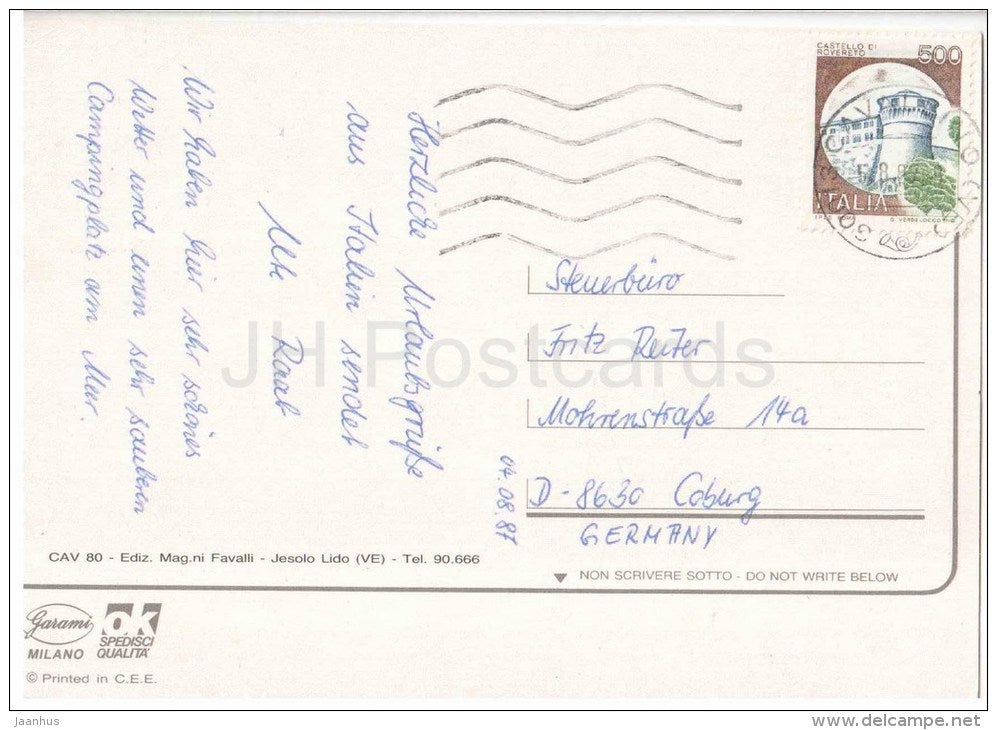 CASTELLO DI
ROVERETO
500
ITALIA
Herzliche Urlaubsgrüße
aus Italien sendet
Ute Raab
Wir haben hier sehr schönes
Wetter und einen sehr sauberen
Campingplatz am Meer.
04.08.87
Steuerbüro
Fritz Reiter
Mohrenstraße 14a
D-8630 Coburg
GERMANY
CAV 80 - Ediz. Mag.ni Favalli - Jesolo Lido (VE) - Tel. 90.666
NON SCRIVERE SOTTO - DO NOT WRITE BELOW
Garami
MILANO
ok
SPEDISCI
QUALITÀ
© Printed in C.E.E.
JH Postcards
Jaanhus
www.delcampe.net